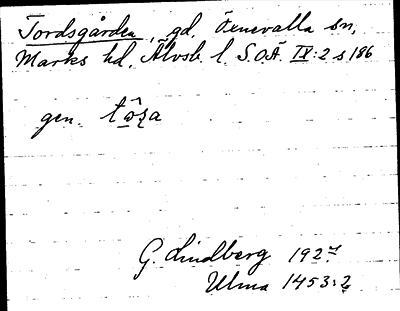 Tordsgården, gd, Öxnevalla sn,
Marks hd, Älvsb. l. S.O.Ä. IX:2 s 186
gen. tɷ̂ʂa
G. Lindberg 1927
Ulma 1453:2